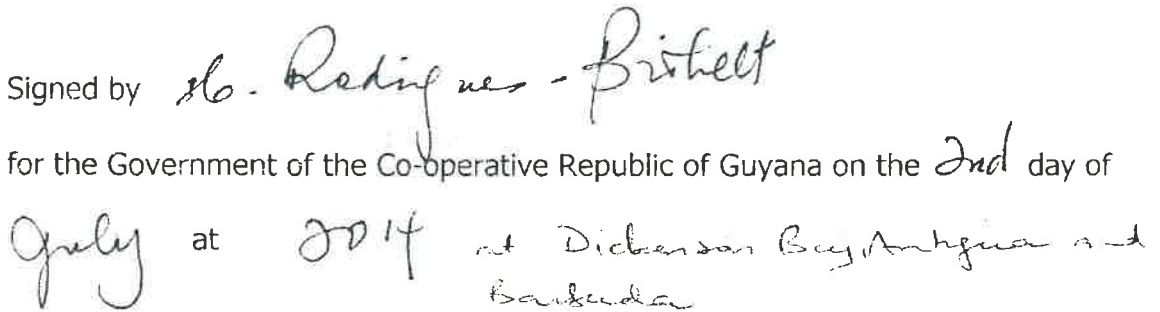 Signed by C. Rodrigues - Birkett
for the Government of the Co-operative Republic of Guyana on the 2nd day of
July at 2014 at Dickenson Bay, Antigua and
Barbuda